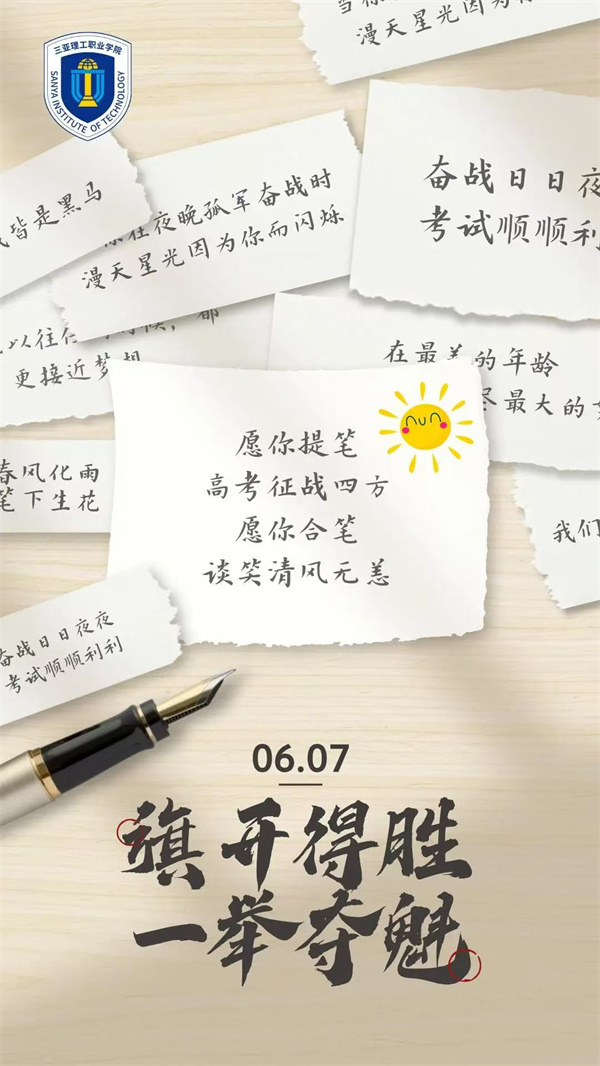 漫天星光因为你
三亚理工职业学院
SANYA INSTITUTE OF TECHNOLOGY
奋战日日夜
考试顺顺利
皆是黑马
你在夜晚孤军奋战时
漫天星光因为你而闪烁
以往
更接近梦想
在最美的年龄
尽最大的
春风化雨
笔下生花
愿你提笔
高考征战四方
愿你合笔
谈笑清风无恙
我们
奋战日日夜夜
考试顺顺利利
06.07
旗开得胜
一举夺魁